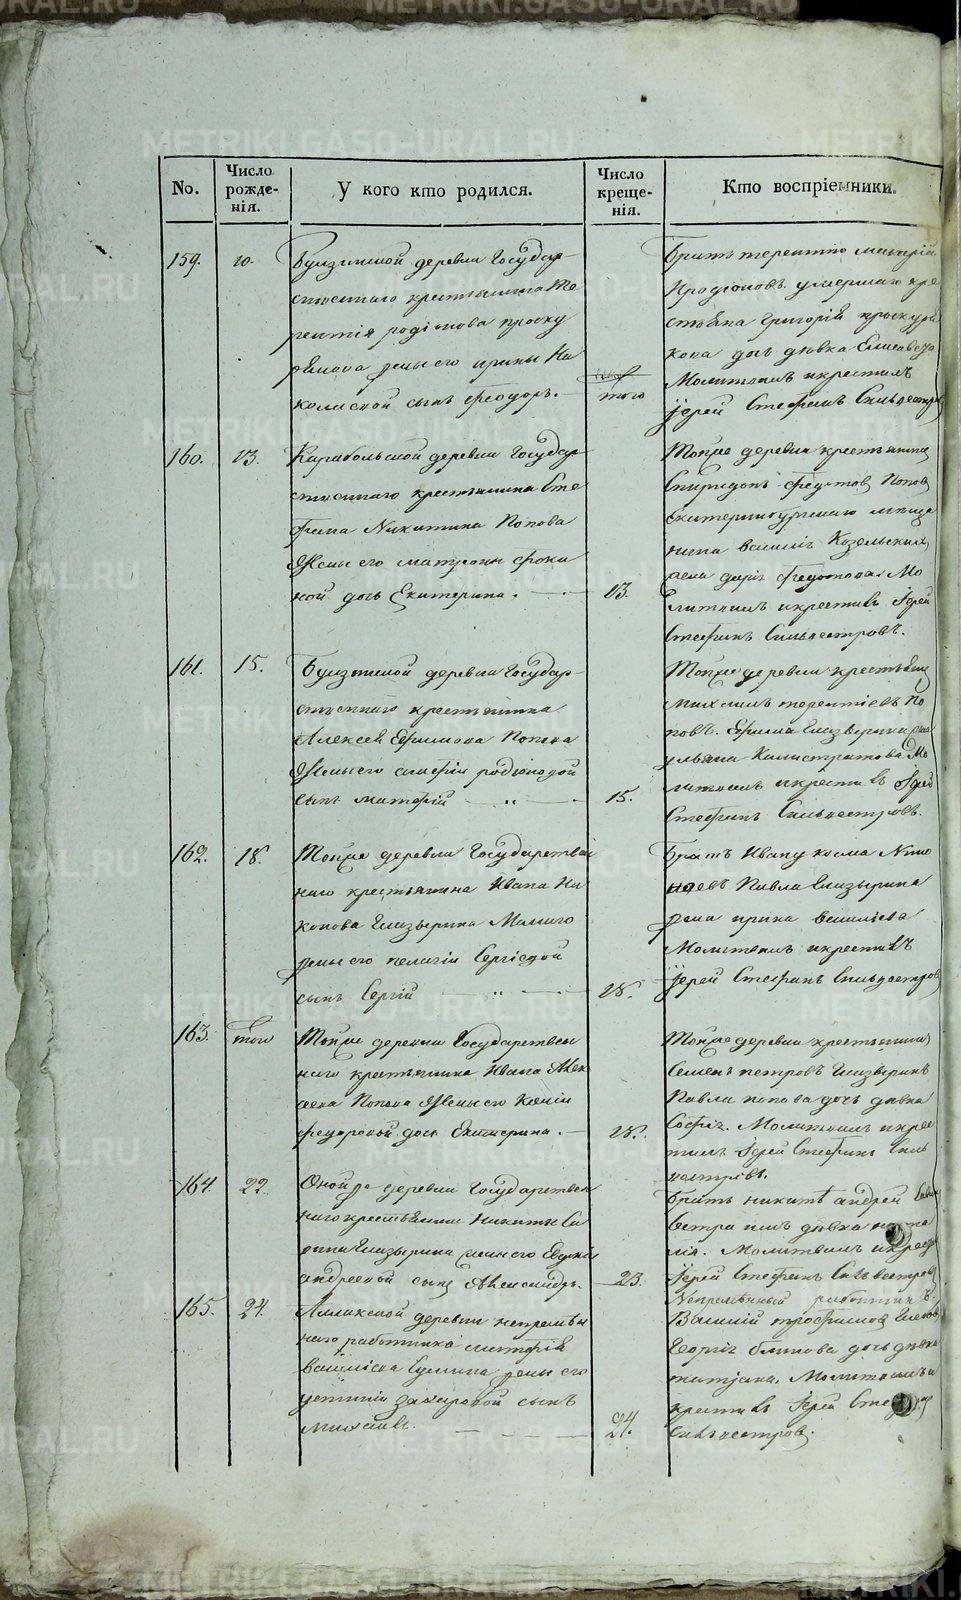 No.
Число рожде-нія.
У кого кто родился.
Число креще-нія.
Кто воспріемники.
159.
10.
деревни Государ-
ственнаго крестьянина Те
рентія родіонова проску
рякова жены его ирины Ни
колаевой сынъ Феодоръ.
того
Братъ терентію
Иродіоновъ умершаго кре
стьяна Григорія проскуря
кова дочь дѣвка Елисавета
Молитвилъ и крестилъ
Іерей Стефанъ Сильвестровъ
160.
13.
Карабольской деревни Государ-
ственнаго крестьянина Сте
фана Никитина Попова
Жены его матроны
ной дочь Екатерина.
13.
Тойже деревни крестьянинъ
Спиридонъ Федотовъ Поповъ
Екатеринбургскаго мѣща
нина василія Козельскаго
жена дарія федотова. Мо
литвилъ и крестилъ Іерей
Стефанъ Сильвестровъ.
161.
15.
деревни Государ-
ственнаго крестьянина
Алексея Ефимова Попова
Жены его
сынъ матфій
15.
Тойже деревни крестьянинъ
михаилъ терентіевъ По
повъ. Ефима Глазырина жена
ульяна Калистратова. Мо
литвилъ и крестилъ Іерей
Стефанъ Сильвестровъ.
162.
18.
Тойже деревни Государствен
наго крестьянина Ивана Ни
конова Глазырина Малаго
жены его пелагіи Сергіевой
сынъ Сергій
18.
Братъ Ивану косма Нико
новъ Павла Глазырина
жена ирина василіева
Молитвилъ и крестилъ
Іерей Стефанъ Сильвестровъ
163.
того
Тойже деревни Государствен
наго крестьянина Ивана Алек
сеева Попова Жены его Ксеніи
федоровой дочь Екатерина.
18.
Тойже деревни крестьянинъ
Семенъ петровъ Глазыринъ
Павла попова дочь дѣвка
Софія. Молитвилъ и крес
тилъ Іерей Стефанъ Силь
вестровъ.
164.
22
Оной же деревни Государствен
наго крестьянина Никиты Са
вина Глазырина жены его Евдокіи
андреевой сынъ Александръ.
23.
Братъ никитѣ андрей
сестра имъ дѣвка
лія. Молитвилъ и крестилъ
Іерей Стефанъ Сильвестровъ
165.
24.
деревни непремѣн
наго работника матфія
василіева жены его
устиніи захаровой сынъ
михаилъ.
24.
Непремѣнный работникъ
Василій трофимовъ
Георгія блинова дочь дѣвка
татіана. Молитвилъ и
крестилъ Іерей Стефанъ
Сильвестровъ.
METRIKI.GASO-URAL.RU